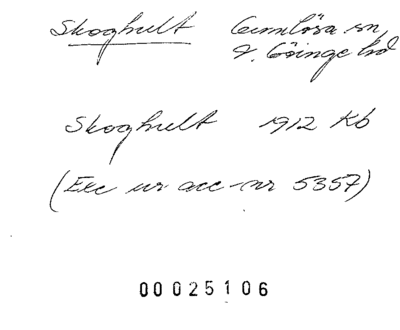 Skoghult Gumlösa sn,
V. Göinge hd
Skoghult 1912 Kb
(Exc ur acc-nr 5357)
00025106